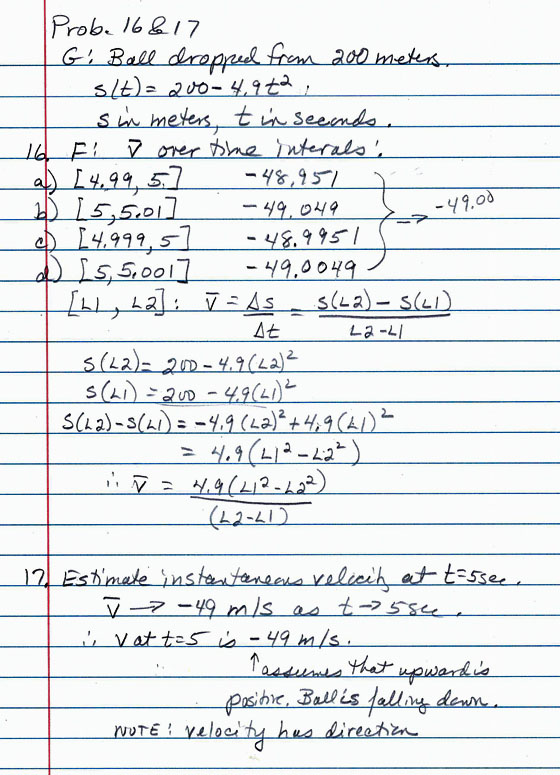 Prob. 16 & 17
G: Ball dropped from 200 meters.
s(t) = 200 - 4.9t² ;
s in meters, t in seconds.
16. F: v̅ over time intervals:
a) [4.99, 5.] -48.951
b) [5, 5.01] -49.049
c) [4.999, 5] -48.9951 => -49.00
d) [5, 5.001] -49.0049
[L1, L2]: v̅ = Δs/Δt = (s(L2) - s(L1))/(L2-L1)
s(L2) = 200 - 4.9(L2)²
s(L1) = 200 - 4.9(L1)²
s(L2)-s(L1) = -4.9(L2)² + 4.9(L1)²
= 4.9(L1² - L2²)
∴ v̅ = 4.9(L1² - L2²)/(L2-L1)
17. Estimate instantaneous velocity at t=5sec.
v̅ → -49 m/s as t → 5sec.
∴ v at t=5 is -49 m/s.
↑ assumes that upward is
positive. Ball is falling down.
NOTE: velocity has direction